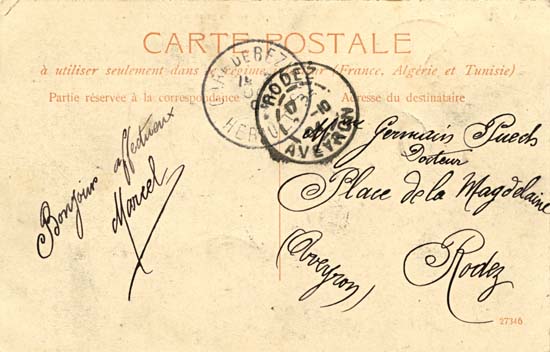 CARTE POSTALE
à utiliser seulement dans le Régime (France, Algérie et Tunisie)
Partie réservée à la correspondance
Adresse du destinataire
RODEZ
AVEYRON
Bonjours affectueux
Marcel
Germain Puech
Docteur
Place de la Magdelaine
Rodez
(Aveyron)
27346